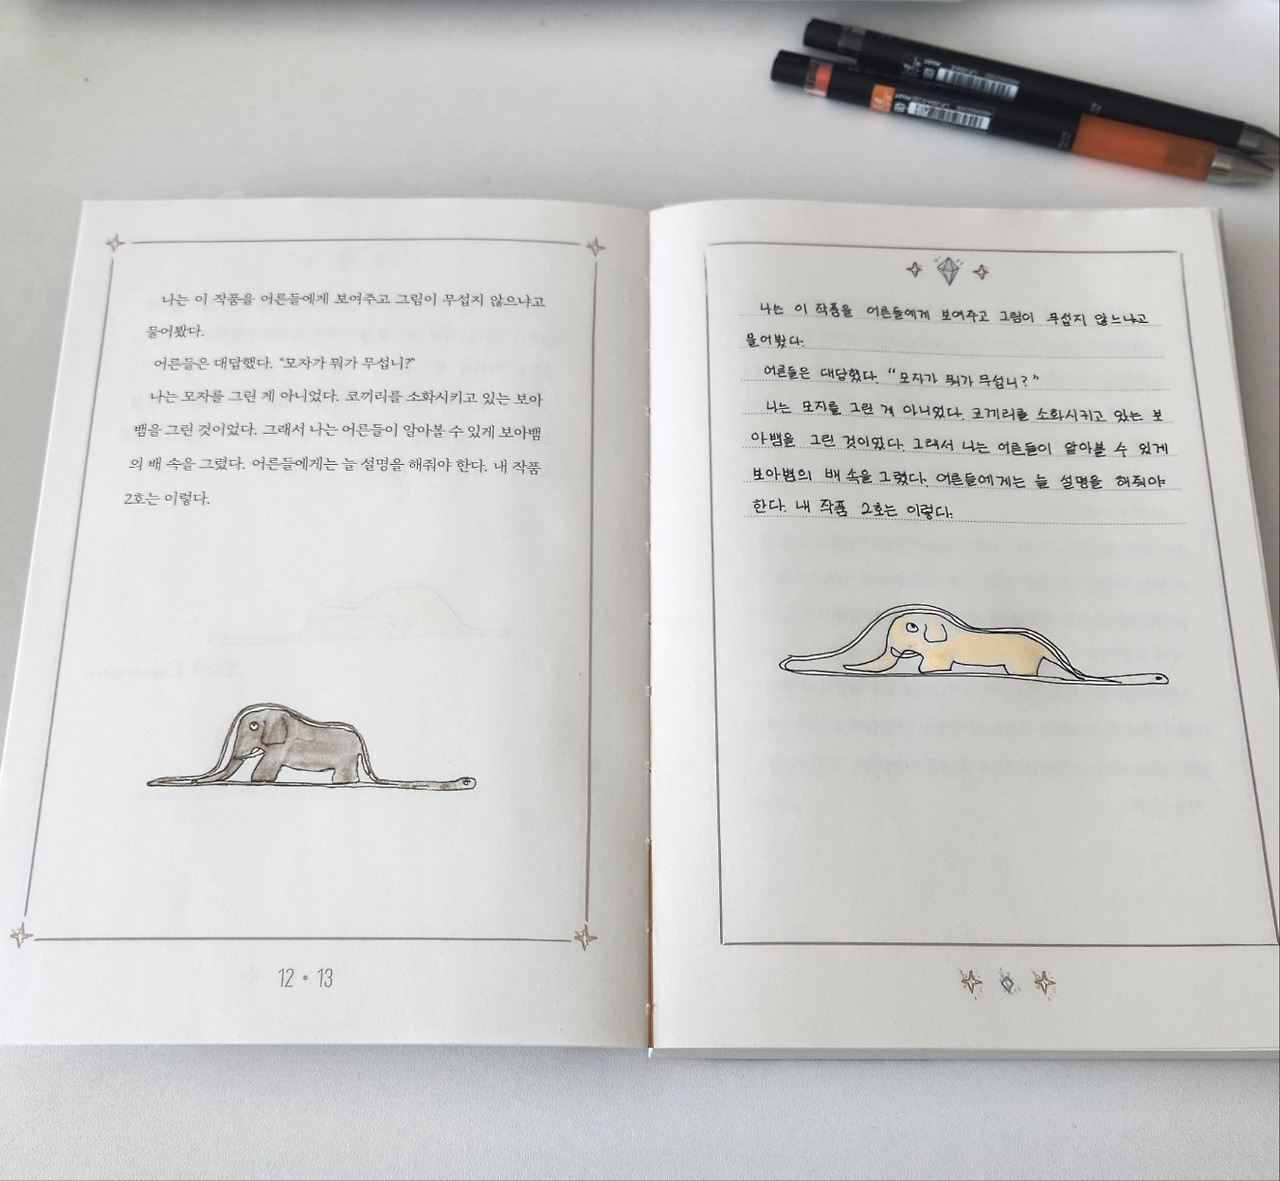 나는 이 작품을 어른들에게 보여주고 그림이 무섭지 않으냐고
물어봤다.
어른들은 대답했다. "모자가 뭐가 무섭니?"
나는 모자를 그린 게 아니었다. 코끼리를 소화시키고 있는 보아
뱀을 그린 것이었다. 그래서 나는 어른들이 알아볼 수 있게 보아뱀
의 배 속을 그렸다. 어른들에게는 늘 설명을 해줘야 한다. 내 작품
2호는 이렇다.
12 • 13
나는 이 작품을 어른들에게 보여주고 그림이 무섭지 않느냐고
물어봤다.
어른들은 대답했다. "모자가 뭐가 무섭니?"
나는 모자를 그린 게 아니었다. 코끼리를 소화시키고 있는 보
아뱀을 그린 것이었다. 그래서 나는 어른들이 알아볼 수 있게
보아뱀의 배 속을 그렸다. 어른들에게는 늘 설명을 해줘야
한다. 내 작품 2호는 이렇다.